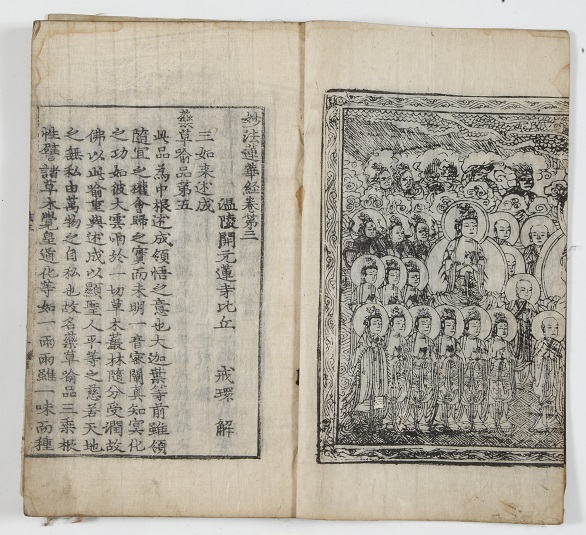 妙法蓮華經卷第三
溫陵開元蓮寺比丘 戒環 解
三如来述成
藥草喻品第五
此品為中根述成領悟之意也大迦葉等前雖領
隨宜之機會歸之實而未明一音密闡真知冥化
之功如彼大雲雨於一切草木叢林隨分受潤故
佛以此喻重與述成以顯聖人平等之慈若天地
之無私由萬物之自私也故名藥草喻品三乘根
性譬諸草木覺皇道化等如一雨雨雖一味而種